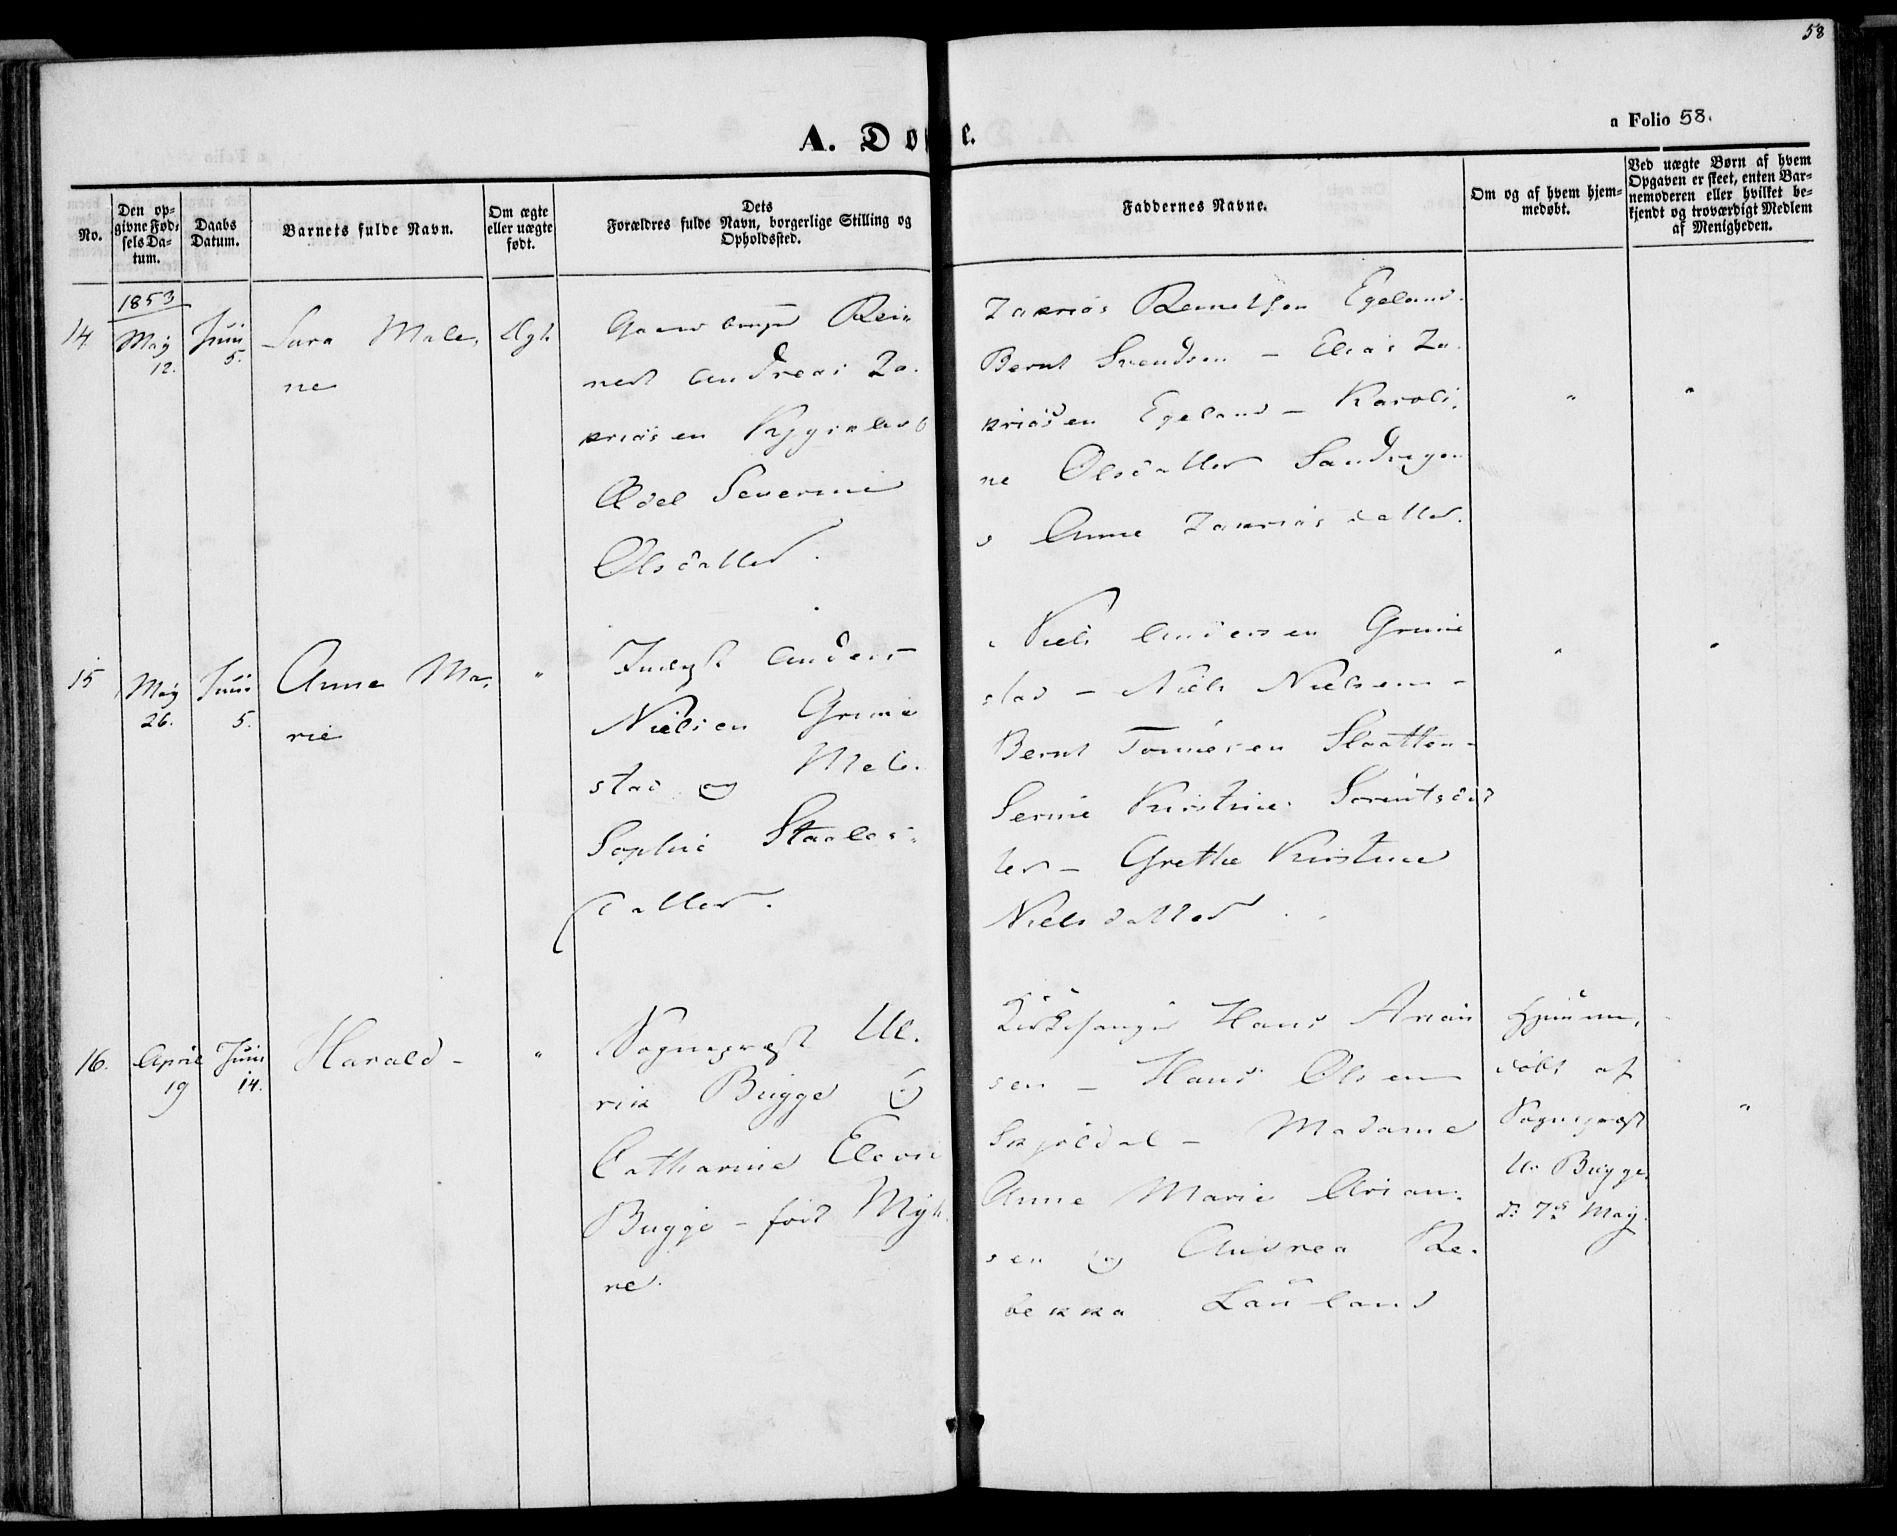 58
A. Døbte.
a Folio 58.
No.
Den op-
givne Fød-
sels Da-
tum.
Daabs
Datum.
Barnets fulde Navn.
Om ægte
eller uægte
født.
Dets
Forældres fulde Navn, borgerlige Stilling og
Opholdssted.
Faddernes Navne.
Om og af hvem hjem-
medøbt.
Ved uægte Børn af hvem
Opgaven er skeet, enten Bar-
nemoderen eller hvilket be-
kjendt og troværdigt Medlem
af Menigheden.
1853
14.
May
12.
Juni
5.
Sara Male,
ne
Ægte
Rei,
nert Andreas Za.
kriasen
Ædel Severine
Olsdatter.
Zakrias Reinertsen Egeland.
Bernt Svendsen - Elias Za.
kriasen Egeland - Karoli,
ne Olsdatter
Anne Zakriasdatter.
"
"
15
May
26.
Juni
5.
Anne Ma,
rie
"
Inderst Anders
Nielsen Grim
stad og Mele.
Sophie Staales,
datter.
Niels Andersen Grim
stad - Niels Nielsen -
Bernt Tønnesen Slaatten -
Serine Kirstine Sørentsdat
ter - Grethe Kirstine
Nielsdatter
"
"
16.
April
19
Juni
14.
Harald -
"
Sognepræst Ul.
rik Bugge og
Catharine Elevine
Bugge - født Myh
re.
Kirkesanger Hans Arian
sen - Hans Olsen
Skjøldal - Madame
Anne Marie Arian.
sen og Andrea Re.
bekka Lauland
Hjemme,
døbt af
Sognepræst
U. Bugge.
d: 7de May.
"